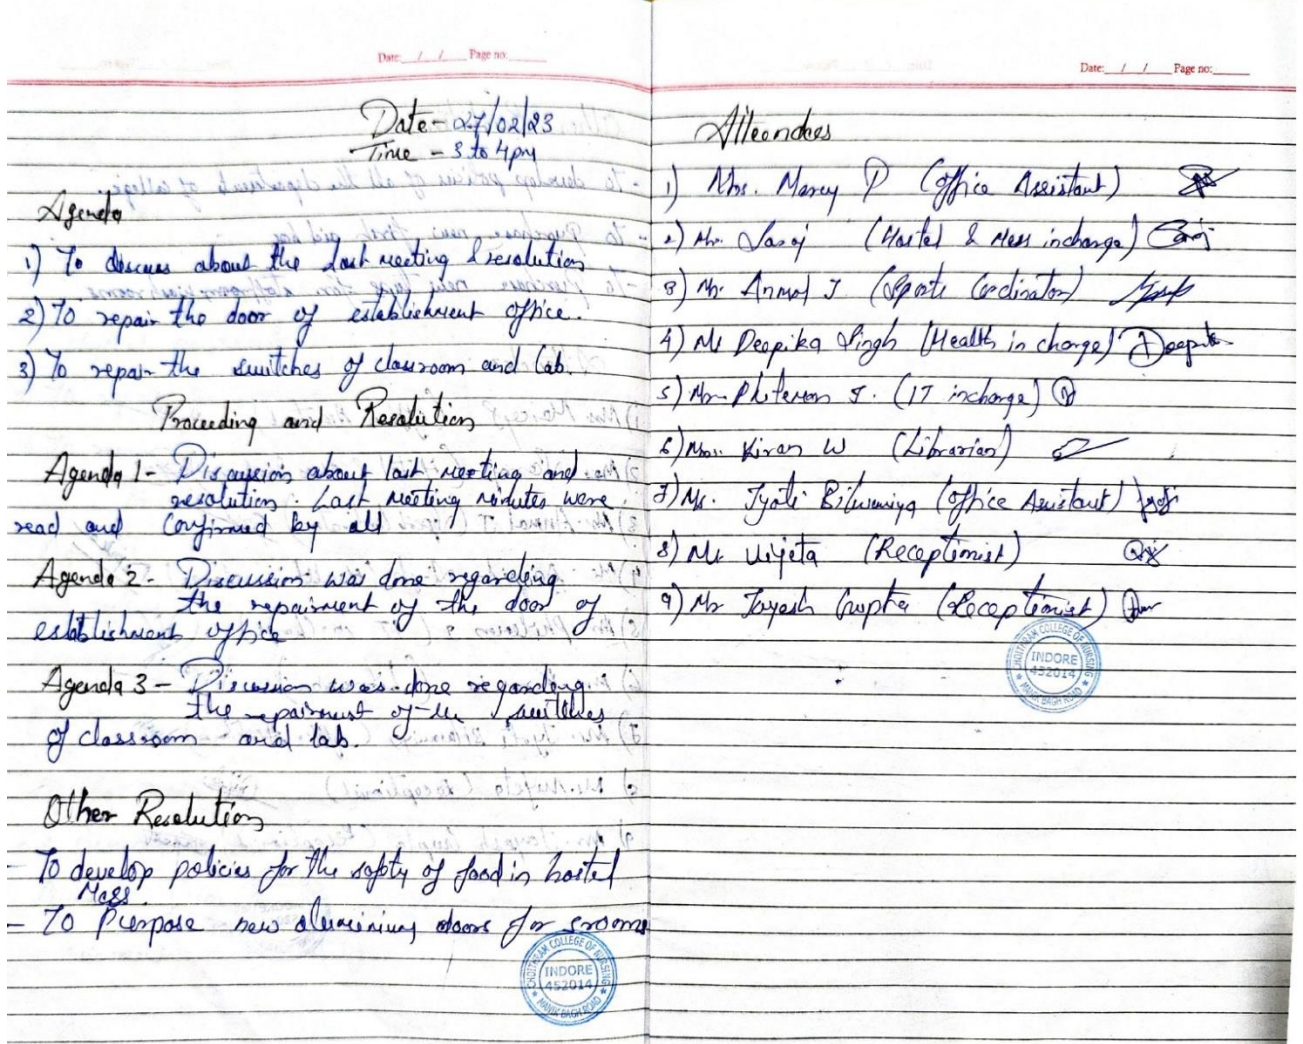 Date: / / Page no:
Date - 27/02/23
Time - 3 to 4pm
Agenda
1) To discuss about the last meeting & resolution
2) To repair the door of establishment office.
3) To repair the switches of classroom and lab.
Proceeding and Resolution
Agenda 1 - Discussion about last meeting and
resolution. Last meeting minutes were
read and confirmed by all
Agenda 2 - Discussion was done regarding
the repairment of the door of
establishment office
Agenda 3 - Discussion was done regarding
the repairment of the switches
of classroom and lab.
Other Resolution
- To develop policies for the safety of food in hostel
Mess.
- To Purpose new aluminium doors for rooms
CHOITHRAM COLLEGE OF NURSING
INDORE
452014
MANIK BAGH ROAD
Date: / / Page no:
Attendees
1) Mrs. Marcy P (Office Assistant)
2) Mr. (Hostel & Mess incharge)
3) Mr. Anmol J (Sports Cordinator)
4) Ms Deepika Singh (Health in charge) Deepika
5) Mr. Philemon J. (IT incharge)
6) Mrs. Kiran W (Librarian)
7) Ms. Jyoti (Office Assistant)
8) Ms Vijeta (Receptionist)
9) Mr Jayesh Gupta (Receptionist)
CHOITHRAM COLLEGE OF NURSING
INDORE
452014
MANIK BAGH ROAD